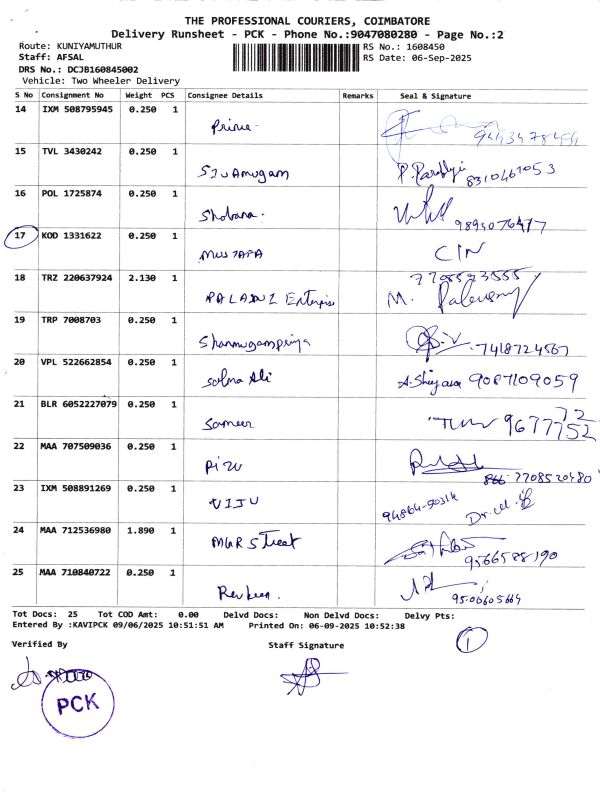 THE PROFESSIONAL COURIERS, COIMBATORE
Delivery Runsheet - PCK - Phone No.:9047080280 - Page No.:2
Route: KUNIYAMUTHUR
Staff: AFSAL
DRS No.: DCJB160845002
Vehicle: Two Wheeler Delivery
RS No.: 1608450
RS Date: 06-Sep-2025
S No Consignment No Weight PCS Consignee Details Remarks Seal & Signature
14 IXM 508795945 0.250 1
Prince
15 TVL 3430242 0.250 1
8310461053
16 POL 1725874 0.250 1
Shobana.
17 KOD 1331622 0.250 1
MUSTAFA CIN
18 TRZ 220637924 2.130 1
M.
19 TRP 7008703 0.250 1
Shanmugampriya 7418724567
20 VPL 522662854 0.250 1
Salma Ali 9087109059
21 BLR 6052227079 0.250 1
Sameer
22 MAA 707509036 0.250 1
7708520480
23 IXM 508891269 0.250 1
VIJU
24 MAA 712536980 1.890 1
MGR Street 9566588190
25 MAA 710840722 0.250 1
Tot Docs: 25 Tot COD Amt: 0.00 Delvd Docs: Non Delvd Docs: Delvy Pts:
Entered By :KAVIPCK 09/06/2025 10:51:51 AM Printed On: 06-09-2025 10:52:38
1
Verified By Staff Signature
PCK